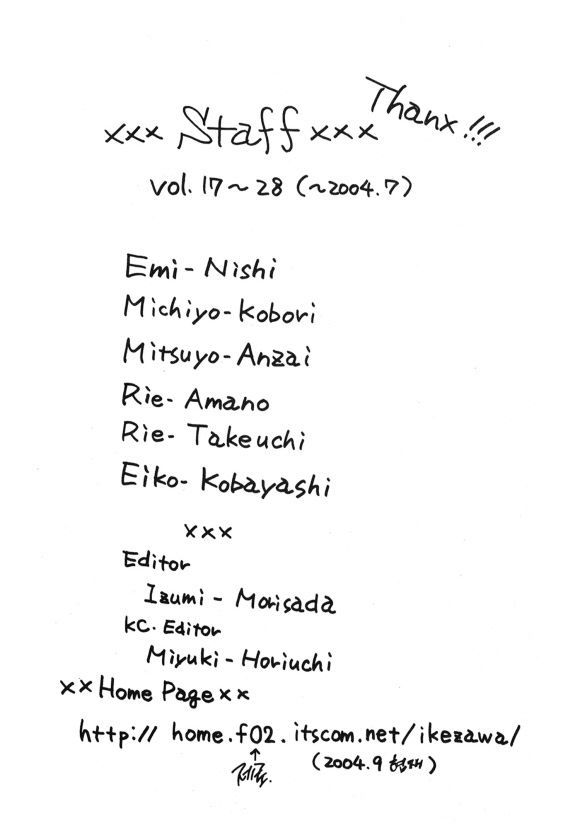 Thanx!!!
xxx Staff xxx
vol. 17～28 (～2004.7)
Emi - Nishi
Michiyo - Kobori
Mitsuyo - Anzai
Rie - Amano
Rie - Takeuchi
Eiko - Kobayashi
xxx
Editor
Izumi - Morisada
KC. Editor
Miyuki - Horiuchi
xx Home Page xx
http:// home.f02.itscom.net/ikezawa/
↑
(2004.9 현재)